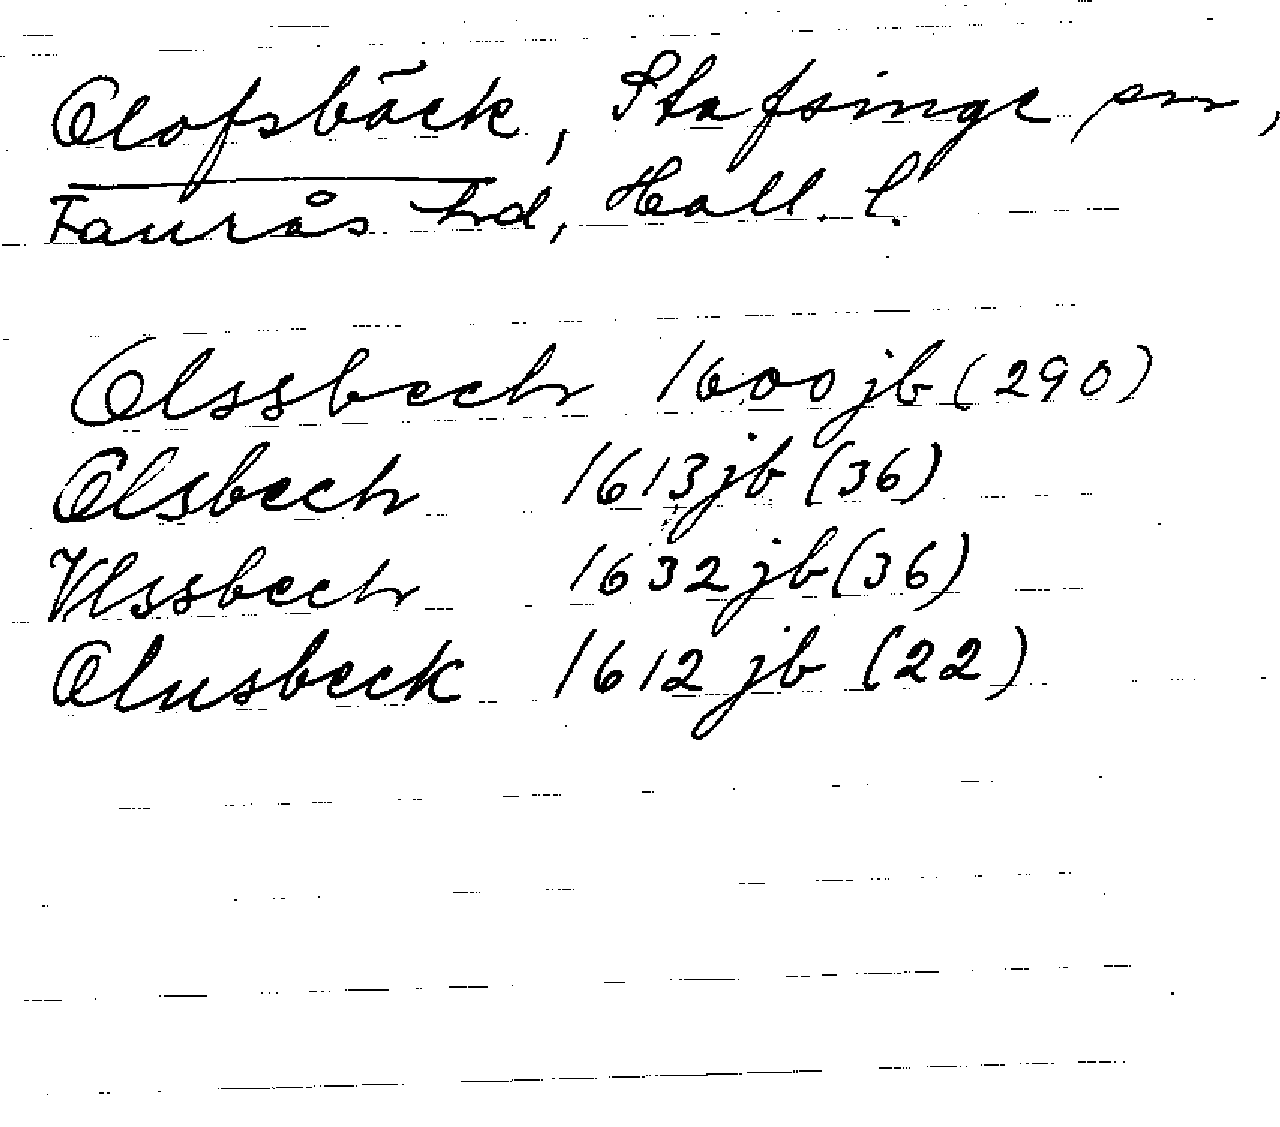 Olofsbäck, Stafsinge sn,
Faurås hd, Hall. l.
Olssbech 1600 jb (290)
Olsbech 1613 jb (36)
Vlssbech 1632 jb (36)
Olusbeck 1612 jb (22)